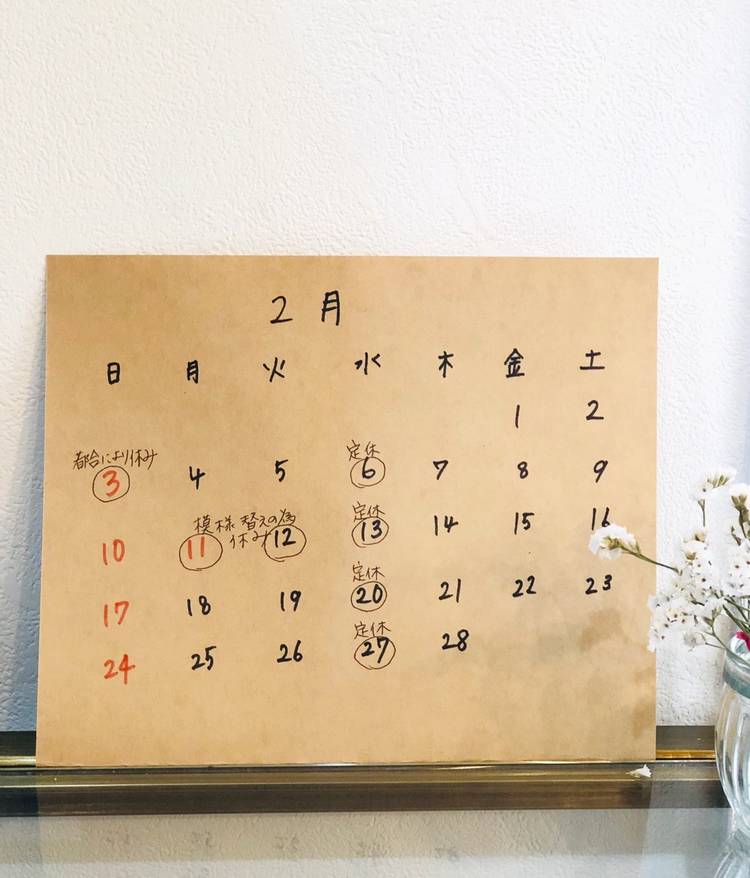 2月
日 月 火 水 木 金 土
1 2
都合により休み 定休
3 4 5 6 7 8 9
模様替えの為 定休
休み
10 11 12 13 14 15 16
定休
17 18 19 20 21 22 23
定休
24 25 26 27 28